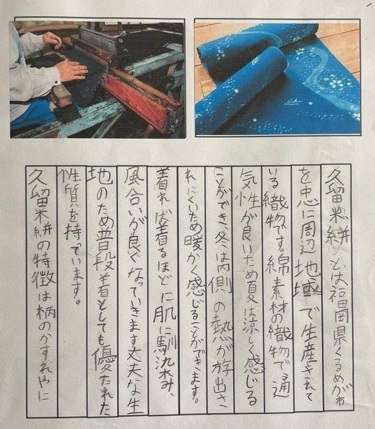 久留米絣とは福岡県くるめがわ
を中心に周辺地域で生産されて
いる織物です。綿素材の織物で通
気性が良いため夏は涼しく感じる
ことができ、冬は内側の熱が放出さ
れにくいため暖かく感じることができます。
着れば着るほどに肌に馴染み、
風合いが良くなっていきます丈夫な生
地のため普段着としても優れた
性質を持っています。
久留米絣の特徴は柄のかすれやに